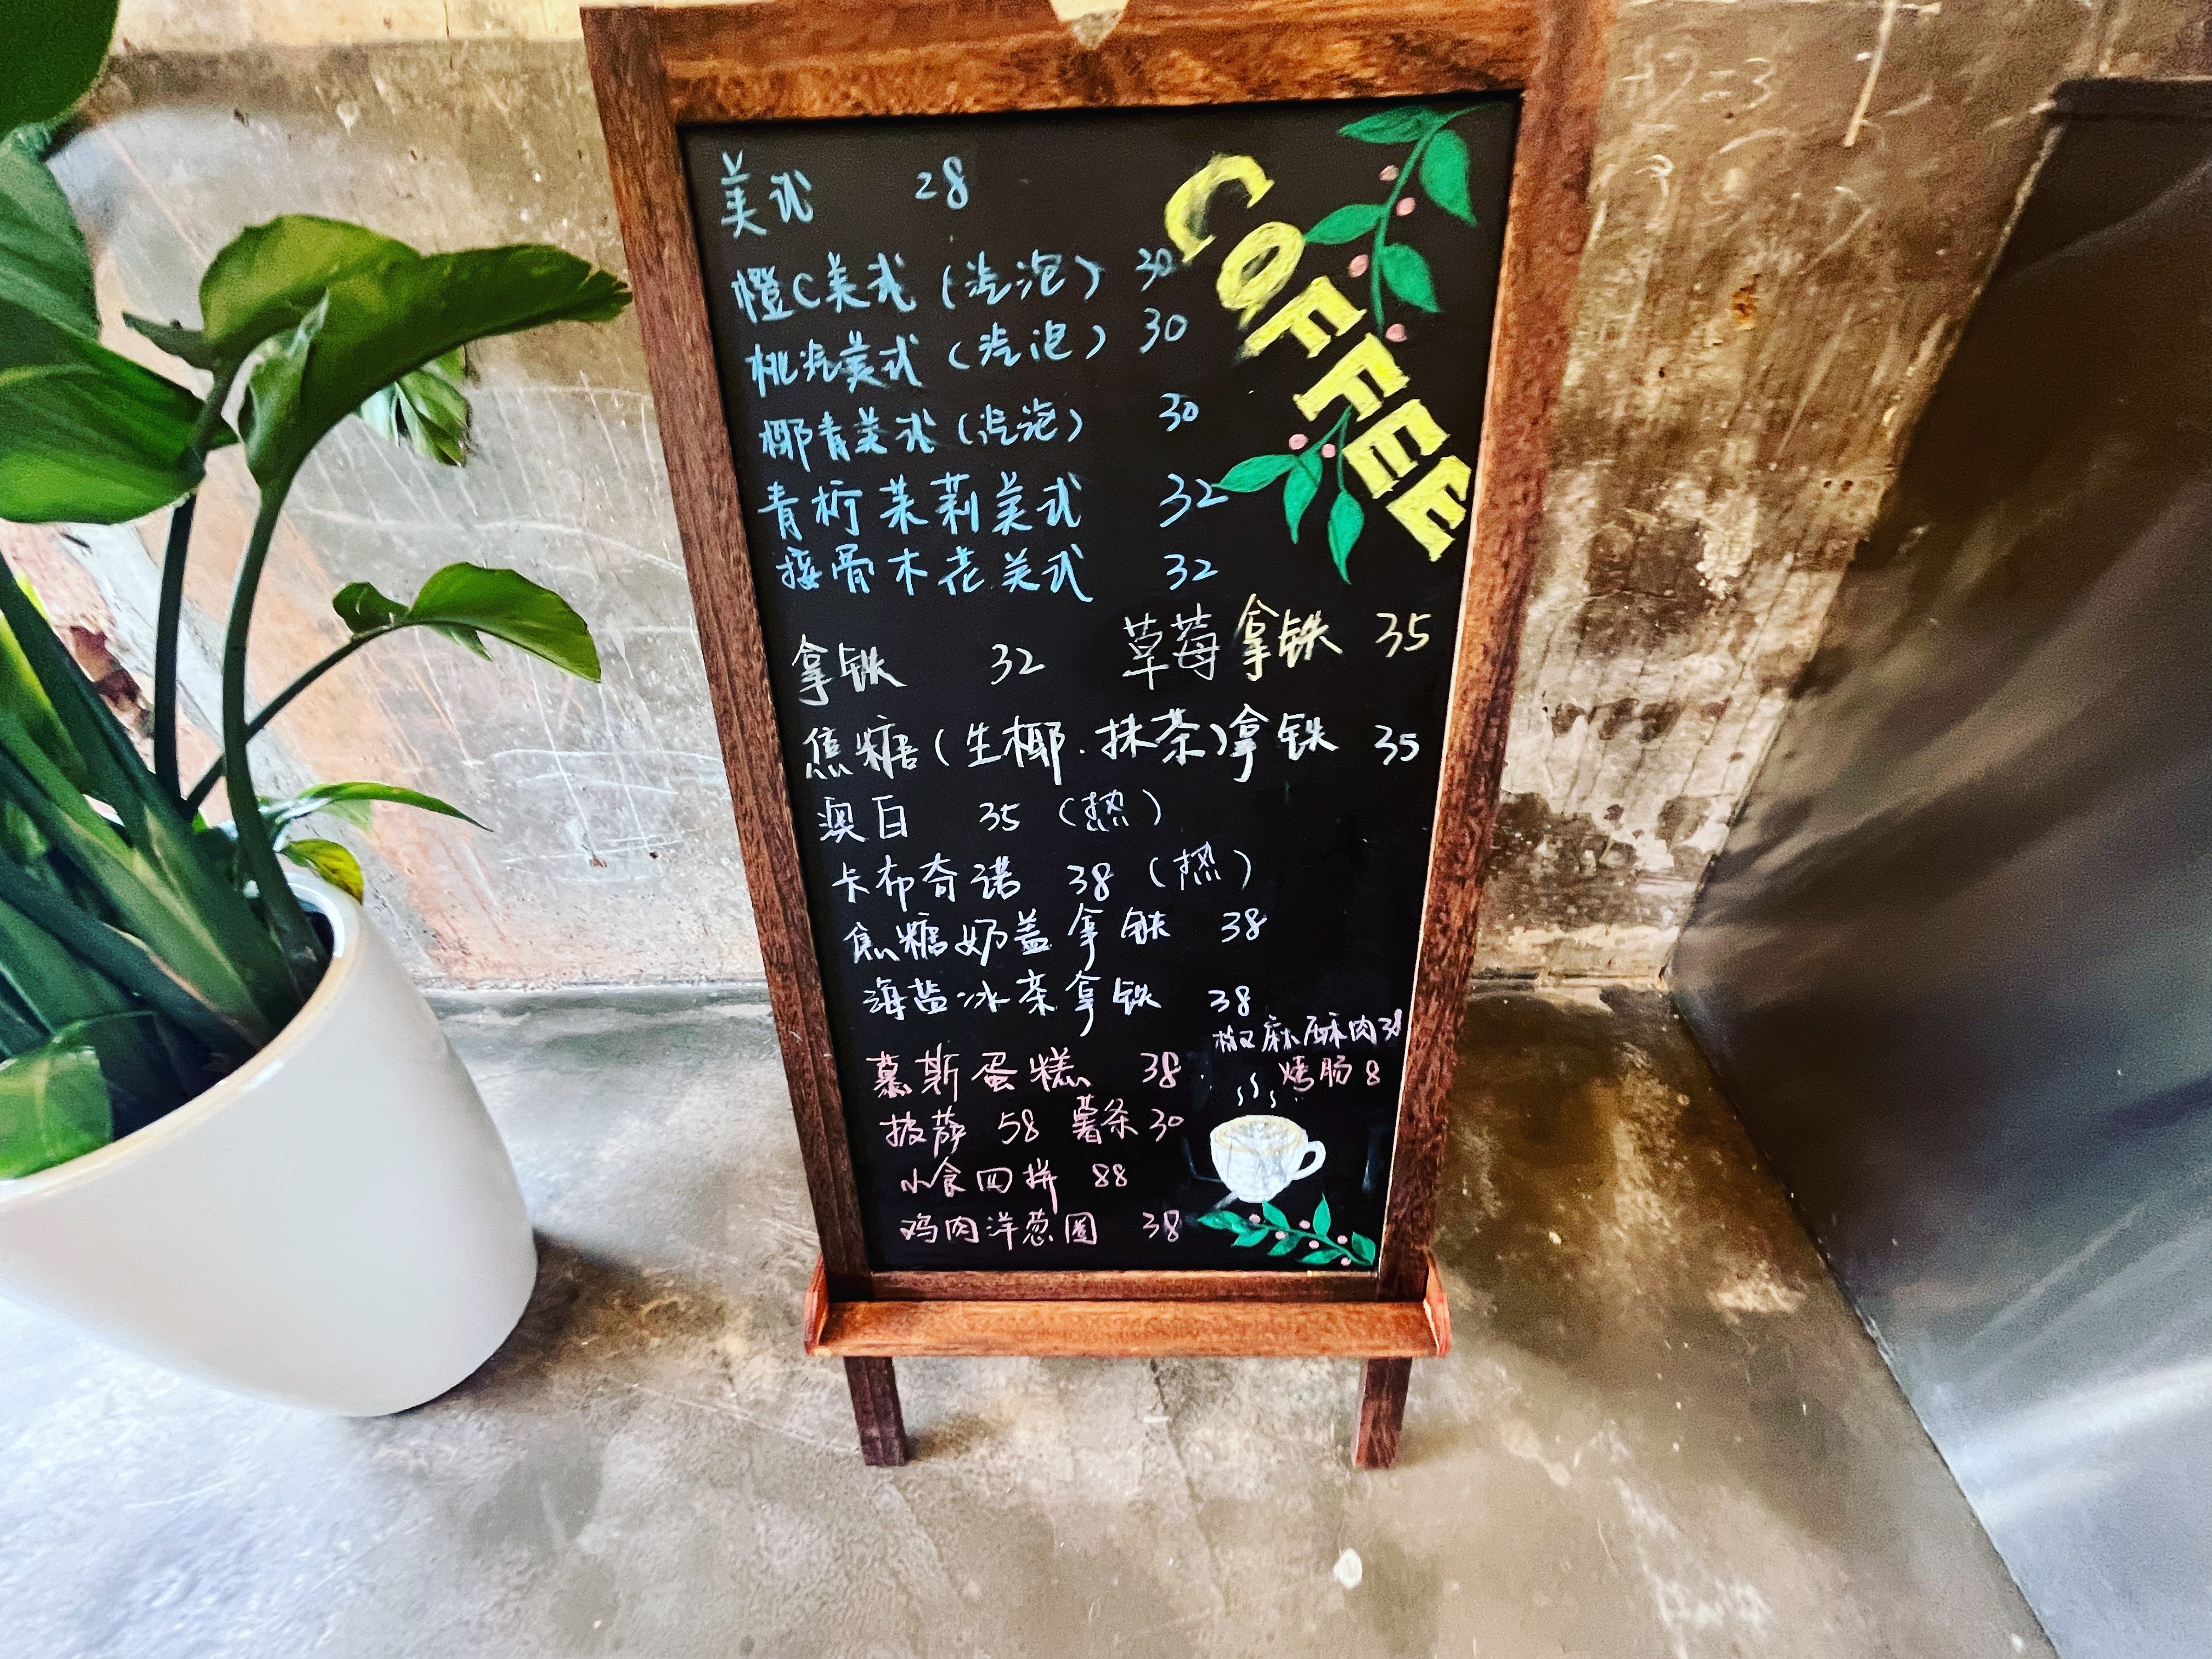 COFFEE
美式 28
橙C美式(汽泡) 30
桃汽美式(汽泡) 30
椰青美式(汽泡) 30
青柠茉莉美式 32
接骨木花美式 32
拿铁 32 草莓拿铁 35
焦糖(生椰.抹茶)拿铁 35
澳白 35 (热)
卡布奇诺 38 (热)
焦糖奶盖拿铁 38
海盐冰茶拿铁 38
椒麻酥肉 38
慕斯蛋糕 38 烤肠 8
披萨 58 薯条 30
小食四拼 88
鸡肉洋葱圈 38